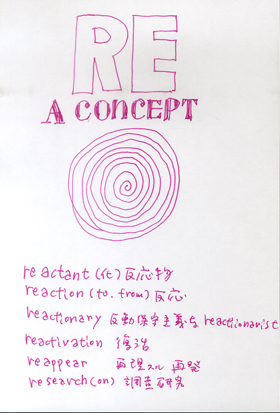 RE
A CONCEPT
reactant (化) 反応物
reaction (to. from) 反応
reactionary 反動保守主義な reactionarist
reactivation 復活
reappear 再現スル 再発
research (on) 調査研究